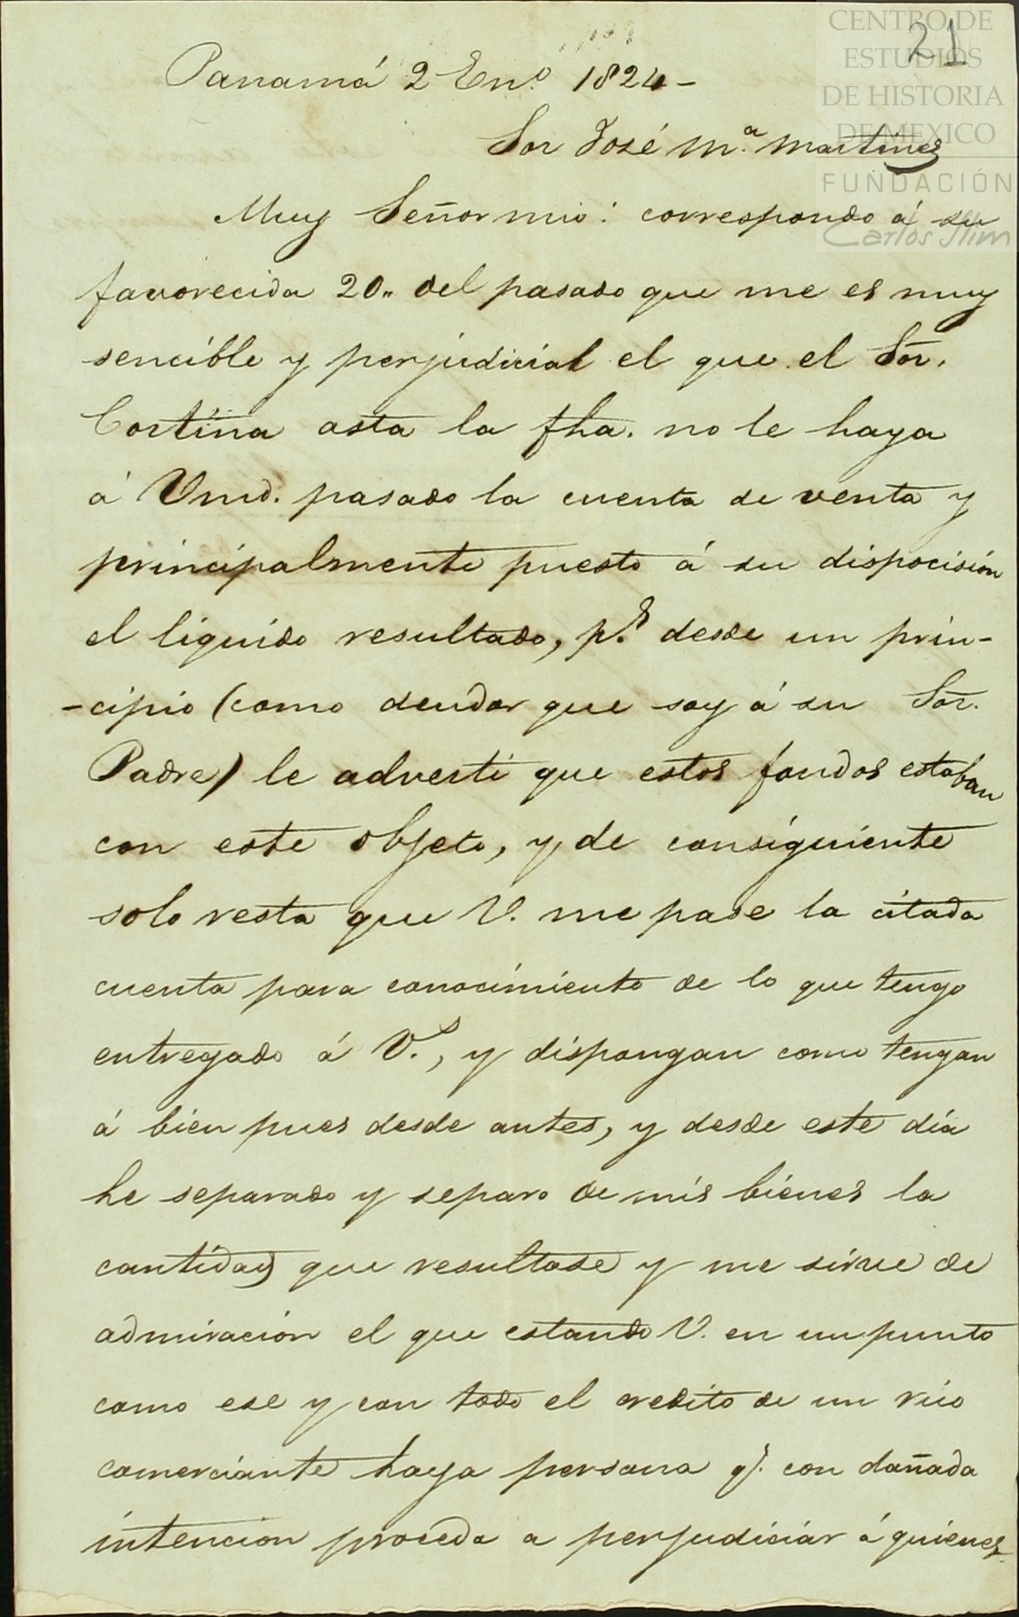 CENTRO DE
ESTUDIOS
DE HISTORIA
DE MEXICO
FUNDACIÓN
Carlos Slim
21
Panamá 2 En.º 1824-
Sor José M.ª Martines
Muy Señor mio: correspondo á su
favorecida 20,, del pasado que me es muy
sencible y perjudicial el que el Sōr.
Cortina asta la fha. no le haya
á Vmd. pasado la cuenta de venta y
principalmente puesto á su dispocisión
el liquido resultado, p.s desde un prin-
-cipio (como deudor que soy á su Sōr.
Padre) le adverti que estos fondos estaban
con este objeto, y de consiguiente
solo resta que V. me pase la citada
cuenta para conocimiento de lo que tengo
entregado á V.s, y dispongan como tengan
á bien pues desde antes, y desde este día
he separado y separo de mis bienes la
cantidad que resultase y me sirve de
admiración el que estando V. en un punto
como ese y con todo el credito de un rico
comerciante haya persona q.e con dañada
intencion proceda a perjudiciar á quienes